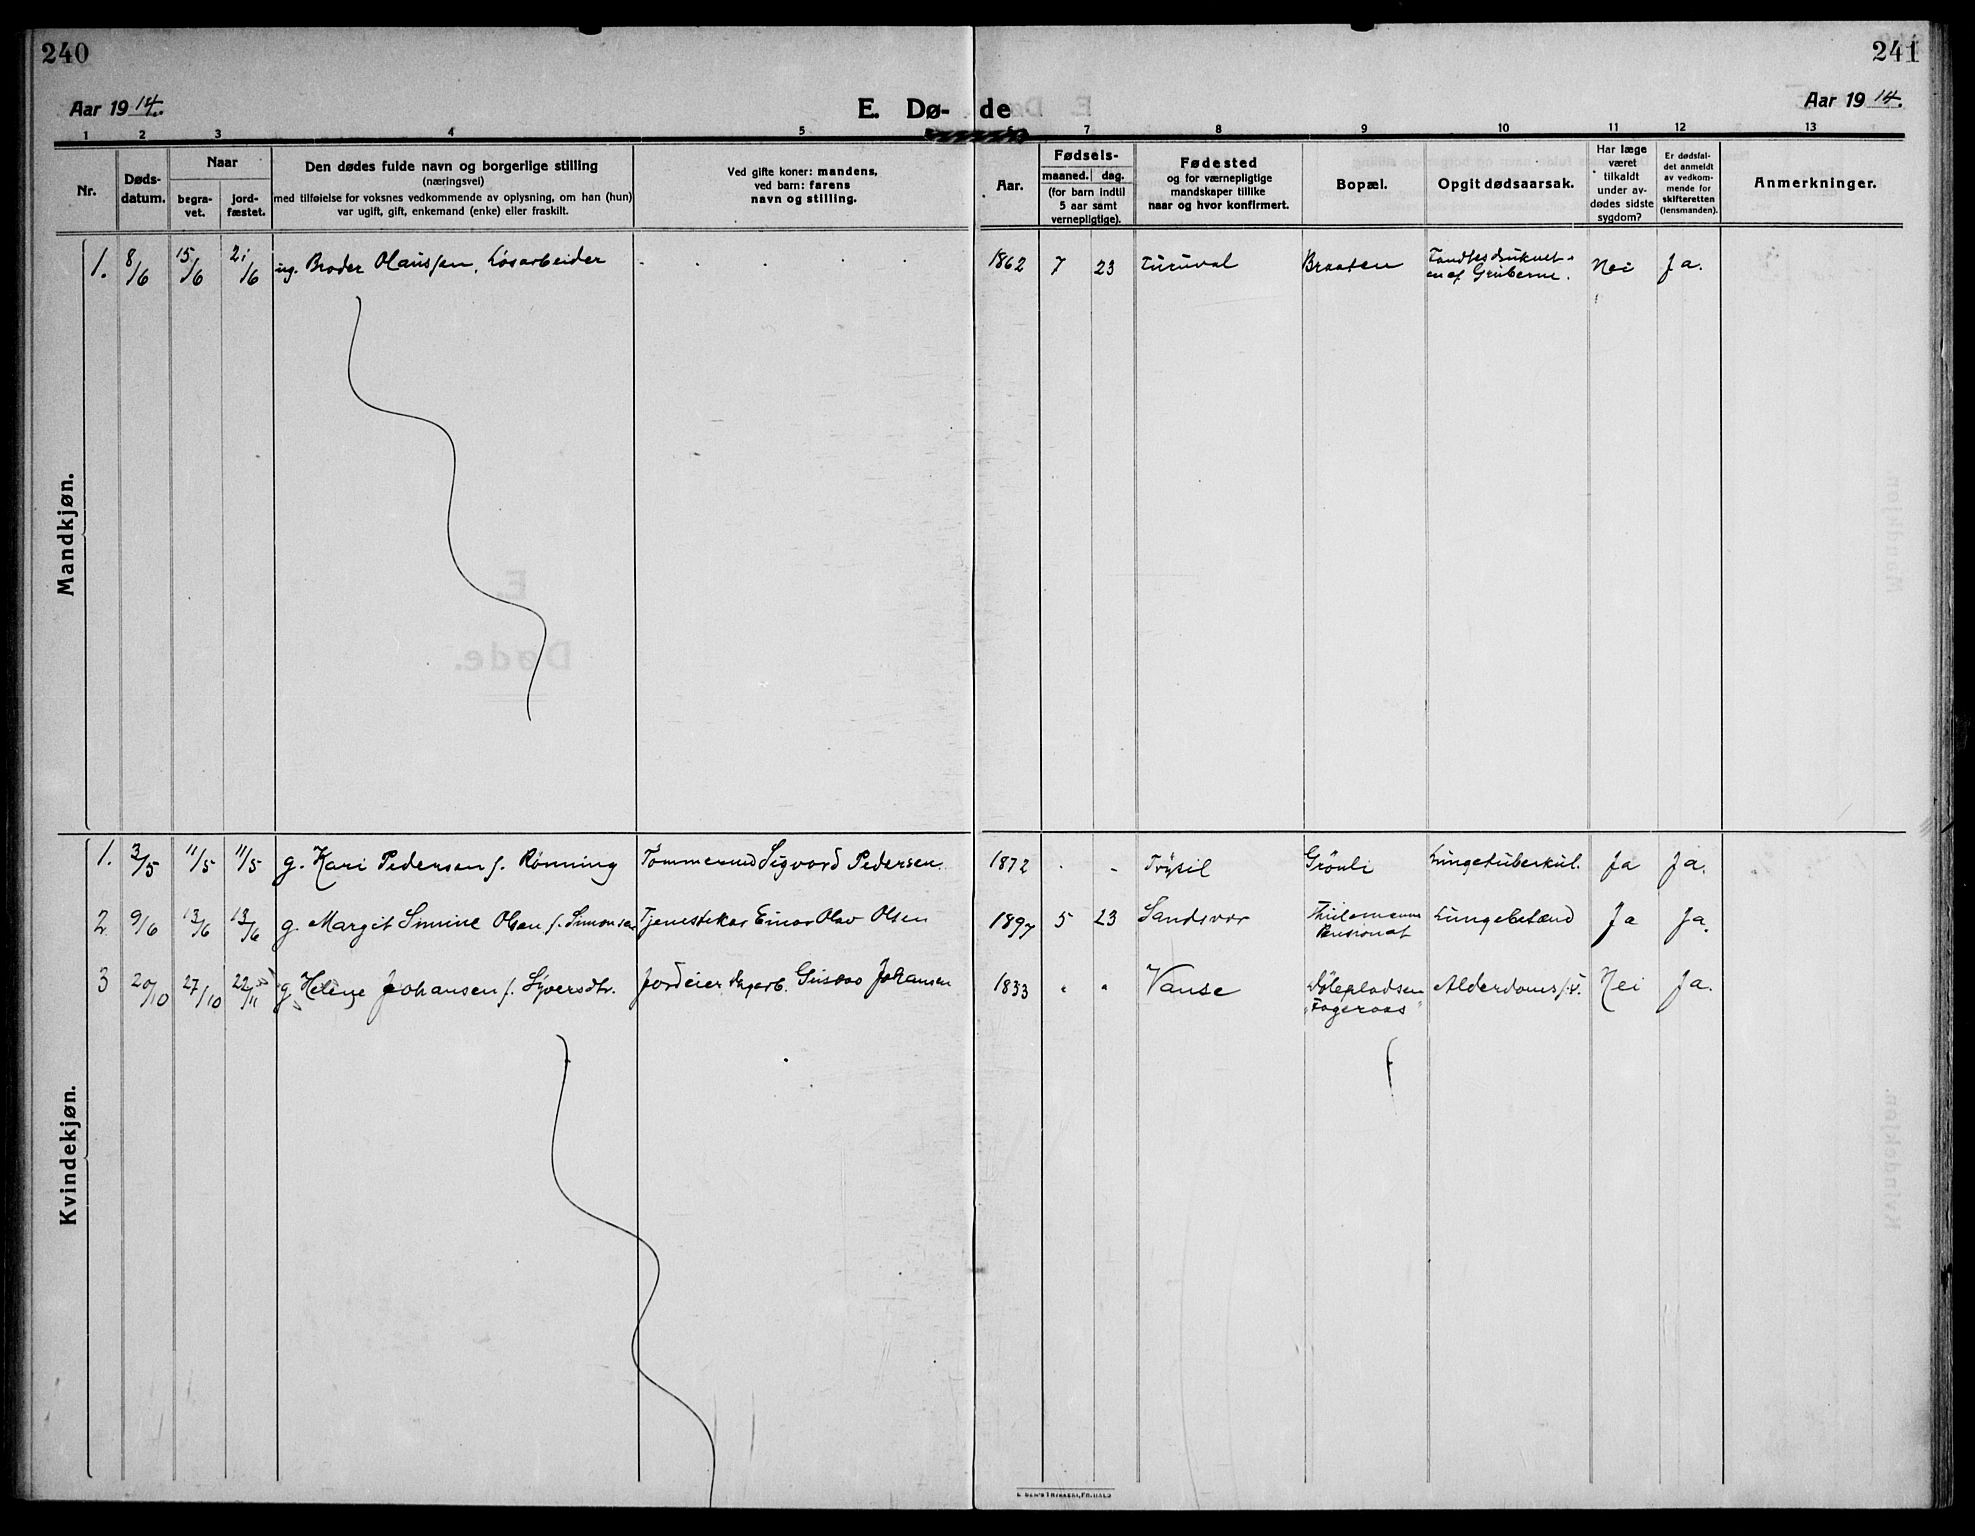 240
241
Aar 1914.
E. Dø- de
Aar 1914.
1 2 3 4 5 7 8 9 10 11 12 13
Nr.
Døds-
datum.
Naar
begra-
vet.
jord-
fæstet.
Den dødes fulde navn og borgerlige stilling
(næringsvei)
med tilføielse for voksnes vedkommende av oplysning, om han (hun)
var ugift, gift, enkemand (enke) eller fraskilt.
Ved gifte koner: mandens,
ved barn: farens
navn og stilling.
Aar.
Fødsels-
maaned. dag.
(for barn indtil
5 aar samt
vernepligtige).
Fødested
og for værnepligtige
mandskaper tillike
naar og hvor konfirmert.
Bopæl.
Opgit dødsaarsak.
Har læge
været
tilkaldt
under av-
dødes sidste
sygdom?
Er dødsfal-
det anmeldt
av vedkom-
mende for
skifteretten
(lensmanden).
Anmerkninger.
Mandkjøn.
1. 8/6 15/6 21/6 ug. Broder Olaussen, Løsarbeider 1862 7 23 Braaten Nei Ja.
en af Gruberne.
Kvindekjøn.
1. 3/5 11/5 11/5 g. Kari Pedersen f. Rönning Sigvard Pedersen. 1872 . - Trysil Grönli Lungetuberkul. Ja Ja.
2. 9/6 13/6 13/6 g. Margit Simine Olsen f. Simonsen Einar Olav Olsen 1897 5 23 Sandsvær Lungebetænd Ja Ja.
Pensionat
3 20/10 27/10 22/11 g. Helene Johansen f. Syversdtr. Jordeier Gustav Johansen 1833 " " Vanse Alderdomss.v. Nei Ja.
"Fageraas"